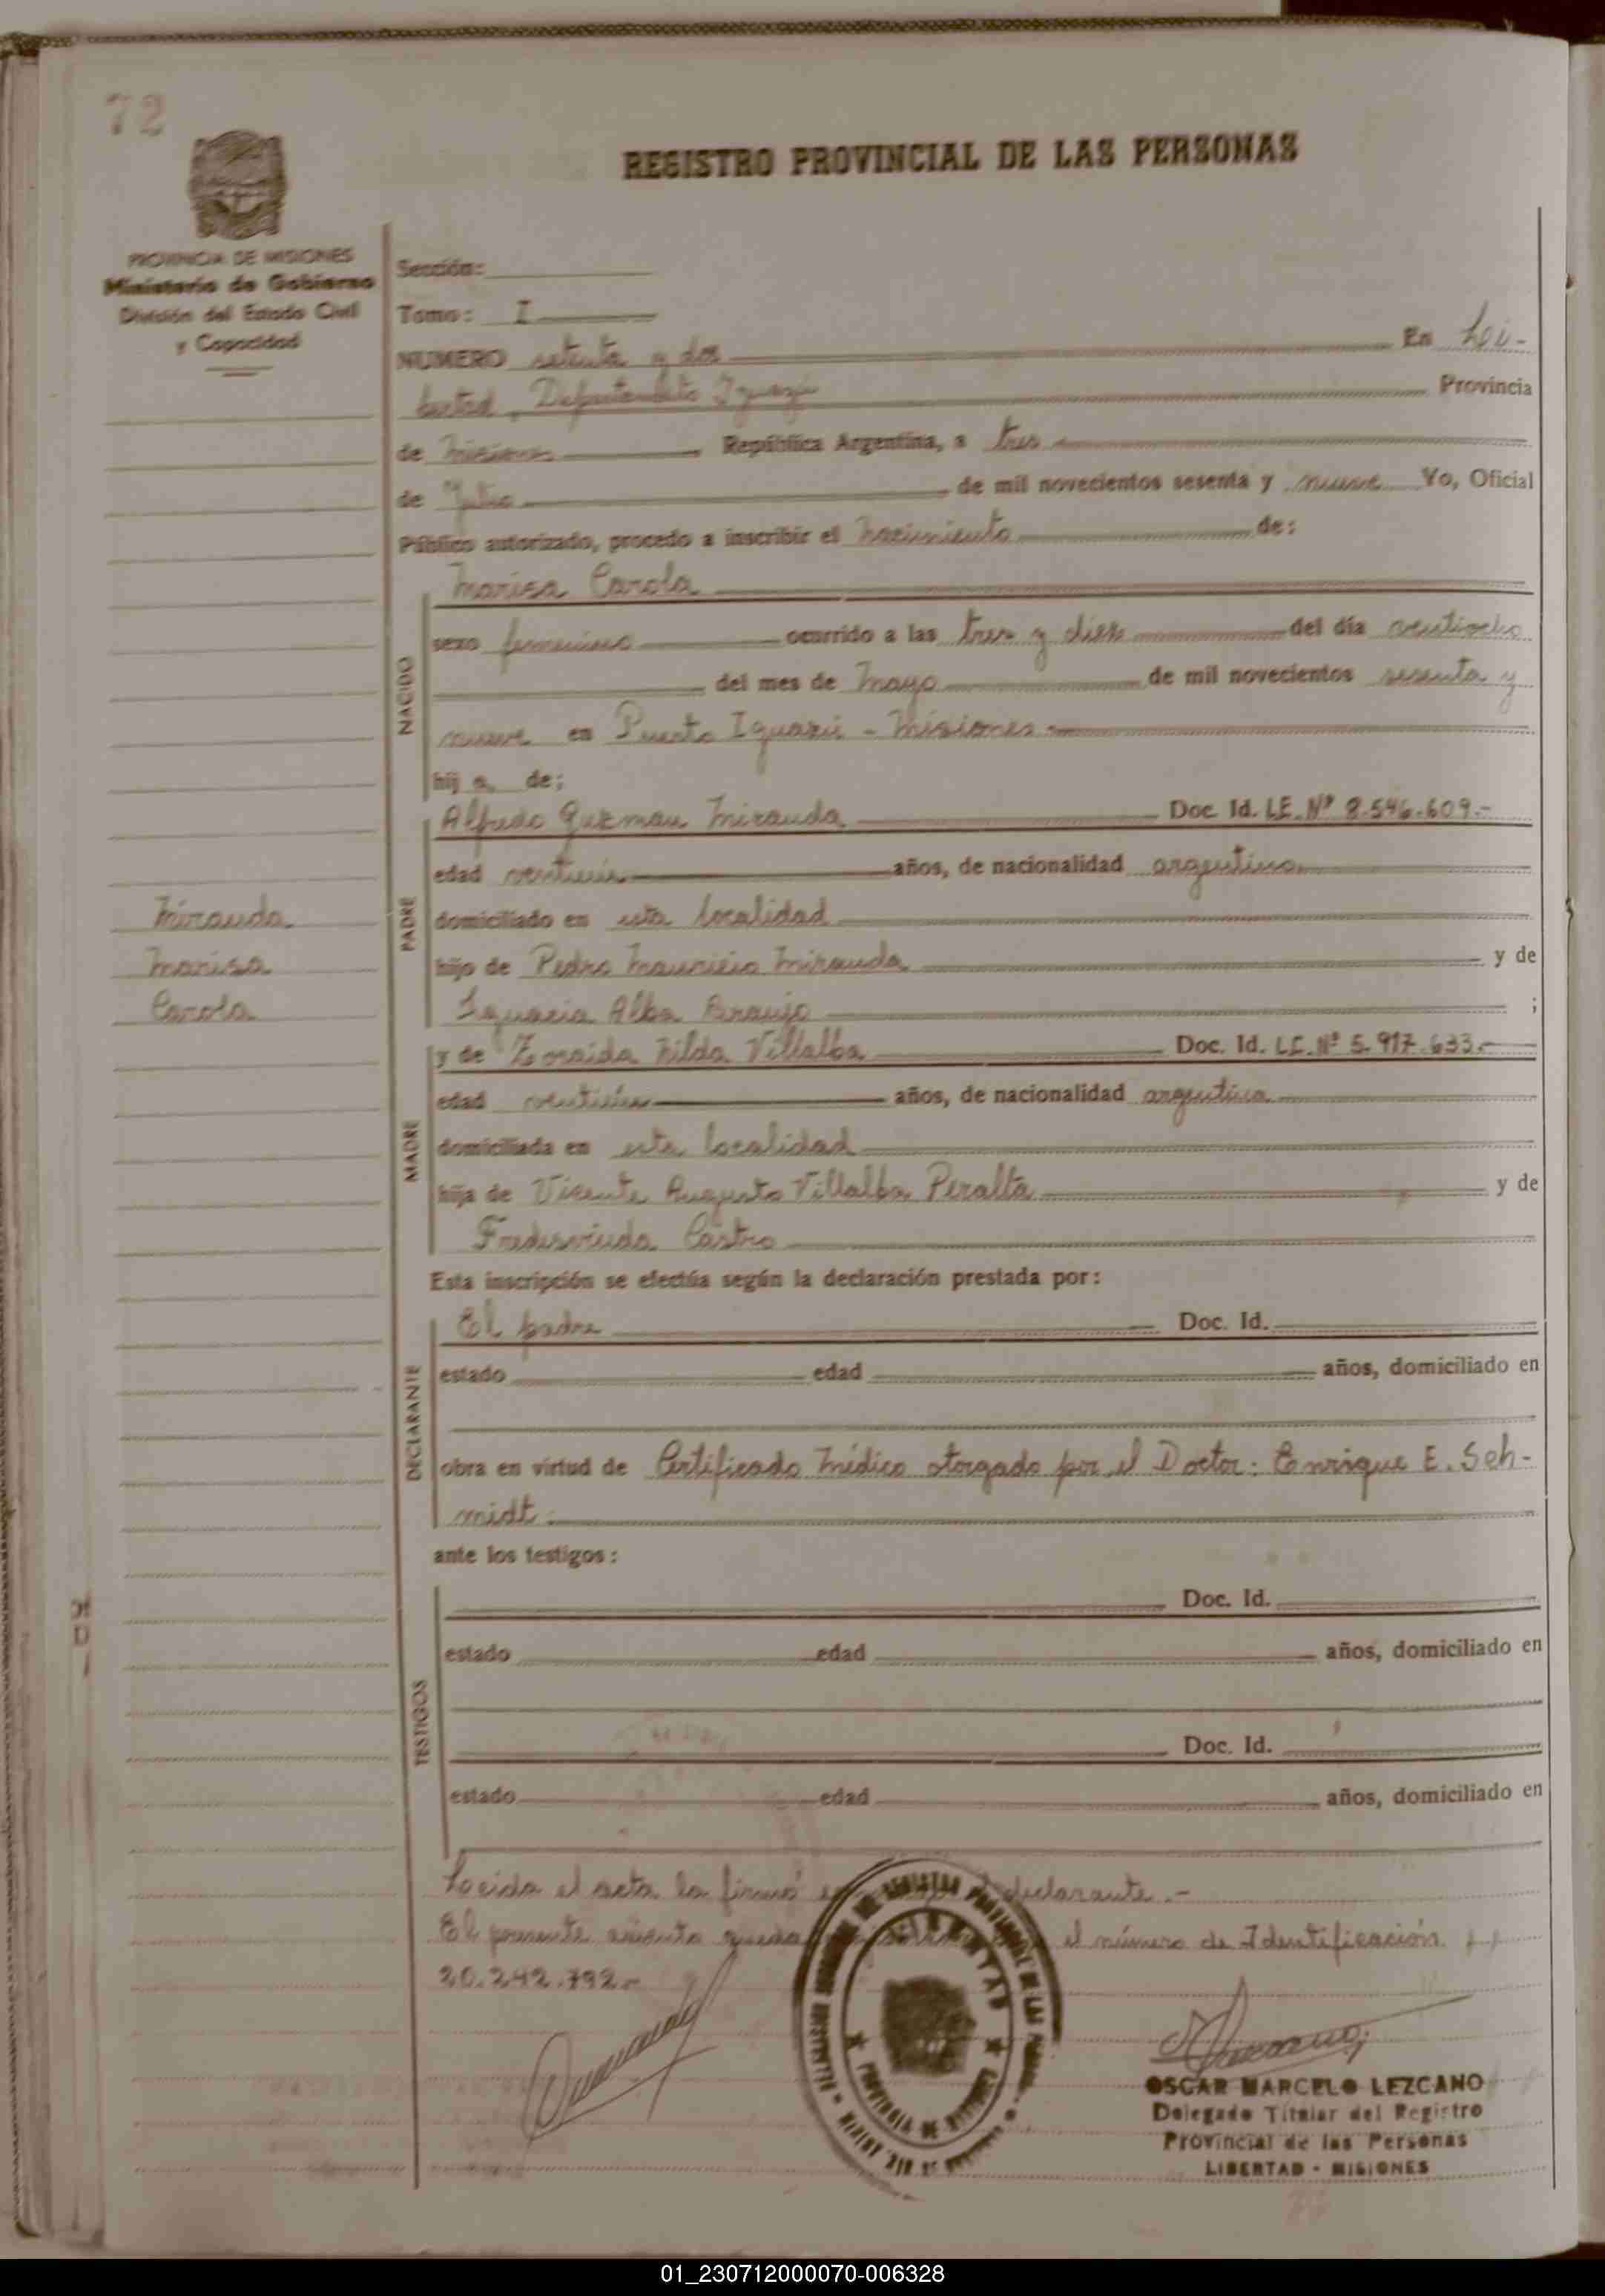 72
REGISTRO PROVINCIAL DE LAS PERSONAS
PROVINCIA DE MISIONES
Ministerio de Gobierno
División del Estado Civil
y Capacidad
Sección:
Tomo: I
NUMERO setenta y dos En Li-
bertad, Departamento Iguazú Provincia
de Misiones República Argentina, a tres
de Julio de mil novecientos sesenta y nueve Yo, Oficial
Público autorizado, procedo a inscribir el nacimiento de:
NACIDO
Marisa Carola
sexo femenino ocurrido a las tres y diez del día ventiocho
del mes de Mayo de mil novecientos sesenta y
nueve en Puerto Iguazú - Misiones -
hij a de:
PADRE
Alfredo Guzman Miranda Doc. Id. LE. Nº 8.546.609.-
edad años, de nacionalidad argentino
domiciliado en esta localidad
hijo de Pedro Mauricio Miranda y de
Ignacia Alba Araujo ;
Miranda
Marisa
Carola
MADRE
y de Zoraida Nilda Villalba Doc. Id. LE. Nº 5.917.633.-
edad años, de nacionalidad argentina
domiciliada en esta localidad
hija de Vicente Augusto Villalba Peralta y de
Fredesvinda Castro
Esta inscripción se efectúa según la declaración prestada por:
DECLARANTE
El padre Doc. Id.
estado edad años, domiciliado en
obra en virtud de Certificado Médico otorgado por el Doctor: Enrique E. Sch-
midt.
ante los testigos:
TESTIGOS
Doc. Id.
estado edad años, domiciliado en
Doc. Id.
estado edad años, domiciliado en
Leida el acta la firmó declarante.-
El presente asiento queda el número de Identificación
20.242.792.-
LIBERTAD
OSCAR MARCELO LEZCANO
Delegado Titular del Registro
Provincial de las Personas
LIBERTAD - MISIONES
01_230712000070-006328